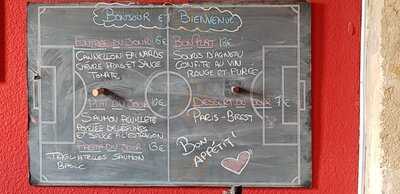 BONJOUR ET BIENVENUE
ENTRÉE DU JOUR 6€
CANNELLONI EPINARDS
CHÈVRE FRAIS ET SAUCE
TOMATE
PLAT DU JOUR 10€
SAUMON FEUILLETÉ
POELÉE DE LEGUMES
ET SAUCE A L'ESTRAGON
PASTA DU JOUR 13€
TAGLIATELLES SAUMON
BASILIC
BON PLAT 18€
SOURIS D'AGNEAU
CONFITE AU VIN
ROUGE ET PURÉE
DESSERT DU JOUR 7€
PARIS-BREST
BON
APPÉTIT!